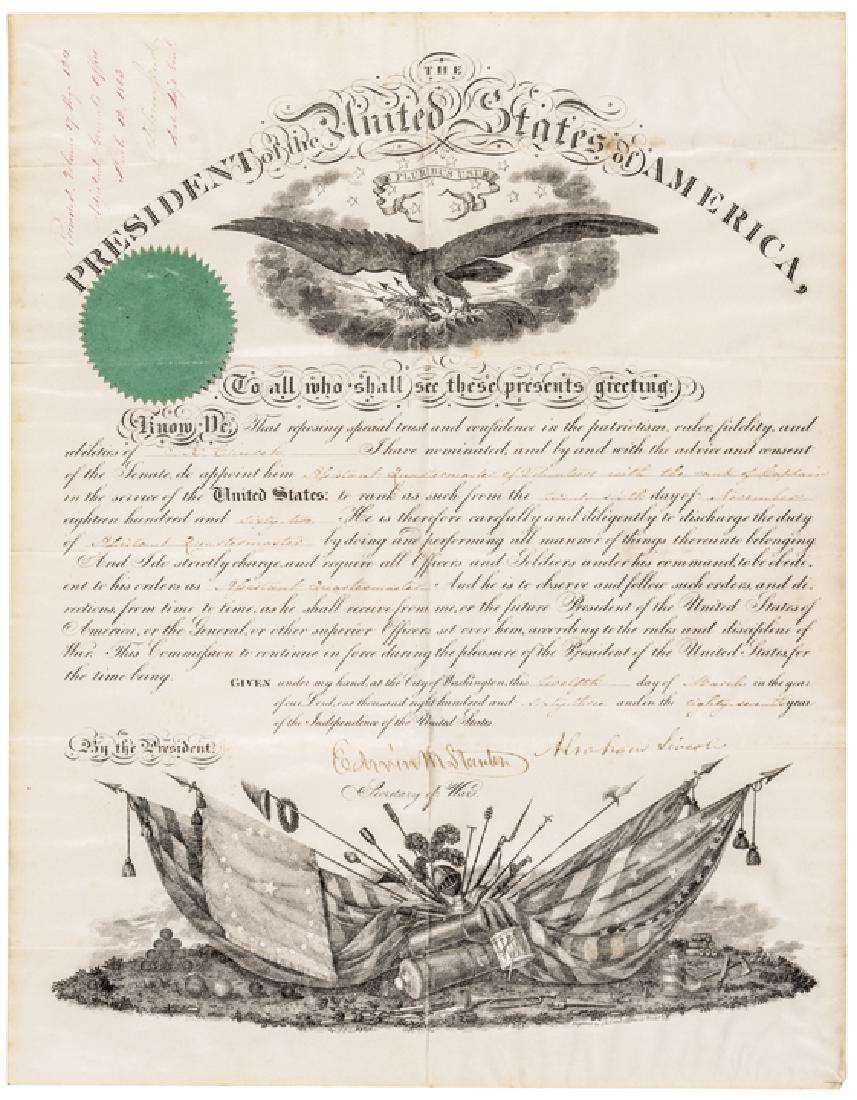 THE
United States
PRESIDENT of the of AMERICA,
E PLURIBUS UNUM
To all who shall see these presents greeting:
Know Ye, That reposing special trust and confidence in the patriotism, valor, fidelity, and
abilities of Church I have nominated, and by and with the advice and consent
of the Senate, do appoint him Assistant Quartermaster of Volunteers with the rank of Captain
in the service of the United States: to rank as such from the twenty sixth day of November
eighteen hundred and sixty two He is therefore carefully and diligently to discharge the duty
of Assistant Quartermaster by doing and performing all manner of things thereunto belonging.
And I do strictly charge, and require all Officers and Soldiers under his command, to be obedi-
ent to his orders as Assistant Quartermaster And he is to observe and follow such orders, and di-
rections, from time to time, as he shall receive from me, or the future President of the United States of
America, or the General, or other superior Officers set over him, according to the rules and discipline of
War. This Commission to continue in force during the pleasure of the President of the United States, for
the time being.
GIVEN under my hand, at the City of Washington, this twelfth day of March in the year
of our Lord, one thousand eight hundred and sixty three and in the eighty seventh year
of the Independence of the United States.
By the President,
Abraham Lincoln
Edwin M Stanton
Secretary of War.